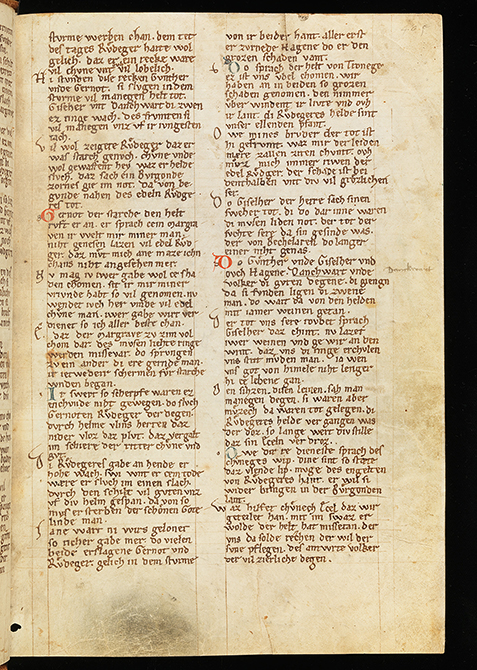 sturme werben chan. dem tet
des tages Rŵdeger harte wol
gelich. daz er ein recke ware
vil chvne vnt vil lobelich.
Hi stvnden dise recken Gvnther
vnde Gernot. si slvgen in dem
stvrme vil manegen helt tot.
Giselher vnt Danchwart di zwen
er ringe wach. des frvmten si
vil manegen vnz vf ir ivngesten
tach.
Vil wol zeigete Rvdeger daz er
was starch genvch. chvne vnde
wol gewaffent. hey waz er helde
slvch. daz sach ein Bvrgonde
zornes gie im not. da von be
gvnde nahen des edeln Rvdge
res tot.
Gernot der starche den helt
rvft er an. er sprach
ir welt mir miner man
niht genesen lazen vil edel Rvd
ger. daz mvt mich ane maze ichn
chans niht angesehen mer.
Nv mag iv iwer gabe wol ze scha
den chomen. sit ir mir miner
vrivnde habt so vil genomen. nv
wendet ivch her vmbe vil edel
chvne man. iwer gabe wirt ver
dienet so ich aller beste chan.
E daz der margrave zv zim vol
chom daz des mvsen liehte ringe
werden missevar. do sprvngen
zven ander di ere gernde man.
ir ietweder schermen fvr starche
wnden began.
Ir swert so scherpfe waren ez
enchvnde niht gewegen. do slvch
Gernoten Rvdeger der degen.
dvrch helm vlins herten daz
nider vloz daz plvt. daz vergalt
im schiere der ritter chvne vnd
gvt.
Di Rvdegeres gabe an hende er
hohe wach. swi wnt er zem tode
ware er slvch im einen slach.
dvrch den schilt vil gvten vnz
vf div helm gespan. da von so
mvs er sterben der schonen Gote
linde man.
Iane wart ni wirs geloner
so richer gabe mer. do vielen
beide erslagene Gernot vnd
Rvdeger. gelich in dem stvrme
von ir beider hant. aller erst
er zvrnede Hagene do er den
grozen schaden vant.
Do sprach der helt von Tronege
ez ist vns vbel chomen. wir
haben an in beiden so grozen
schaden genomen. den nimmer
vber windent ir livte vnd ovch
ir lant. di Rvdegeres helde sint
vnser ellenden pfant.
Owe mines brvder der tot ist
hi gefrvmt. waz mir der leiden
mere zallen ziten chvmt. ovch
mvz mich immer riwen der
edel Rvdger. der schade ist bei
denthalben vnt div vil grozlichen
ser.
Do Giselher der herre sach sinen
sweher tot. di do dar inne waren
di mvsen liden not. der tot der
svchte sere da sin gesinde was.
der von Bechelaren do langer
einer niht genas.
Do Gvnther vnde Giselher vnd
ovch Hagene. Danchwart vnde
volker di gvten degene. di giengen
da si fvnden ligen di zwene
man. do wart da von den helden
mit iamer weinen getan.
Der tot vns sere rovbet sprach
Giselher daz chint. nv lazet
iwer weinen vnd ge wir an den
wint. daz vns di ringe erchvlen
vns strit mvden man. Io wen
vns got von himele niht lenger
hi ze lebene gan.
Den sitzen. disen leinen. sah man
manegen degen. si waren aber
mvzech da waren tot gelegen. di
Rvdegeres helde ver gangen was
der doz. so lange wert div stille
daz sin Ecеln ver droz.
Owe dirre dieneste sprach des
chvneges wip. dine sint so stæte
daz vnser lip. mvge des engelten
von Rvdegeres hant. er wil si
wider bringen in der Bvrgonden
lant.
Waz hilfet chvnech Ecel daz wir
geteilet han. mit im swaz er
wolde der helt hat missetan. der
vns da solde rechen der wil der
svne pflegen. des antwrte volker
der vil zierliche degen.
Danckwart